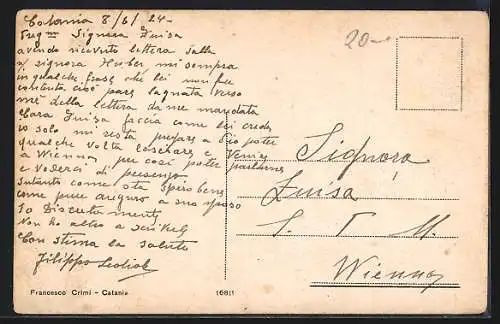 Catania 8/6/24-
Preg.ma Signora Luisa
avendo ricevuto lettera dalla
signora Huber mi sembra
in qualche frase che lei non fu
contenta cioè pare lagnata verso
me della lettera da me mandata
Cara Luisa faccia come lei crede
io solo mi resta pregare a Dio poter
qualche volta lasciare e venire
a Vienna per così poter parlarne
e vederci di presenza
Intanto come sta spero bene
come pure auguro a suo sposo
Io discretamente
Non ho altro a scriverle
Con stima la saluto
Filippo
20-
Signora
Luisa
S. M.
Wienna
Francesco Crimi - Catania